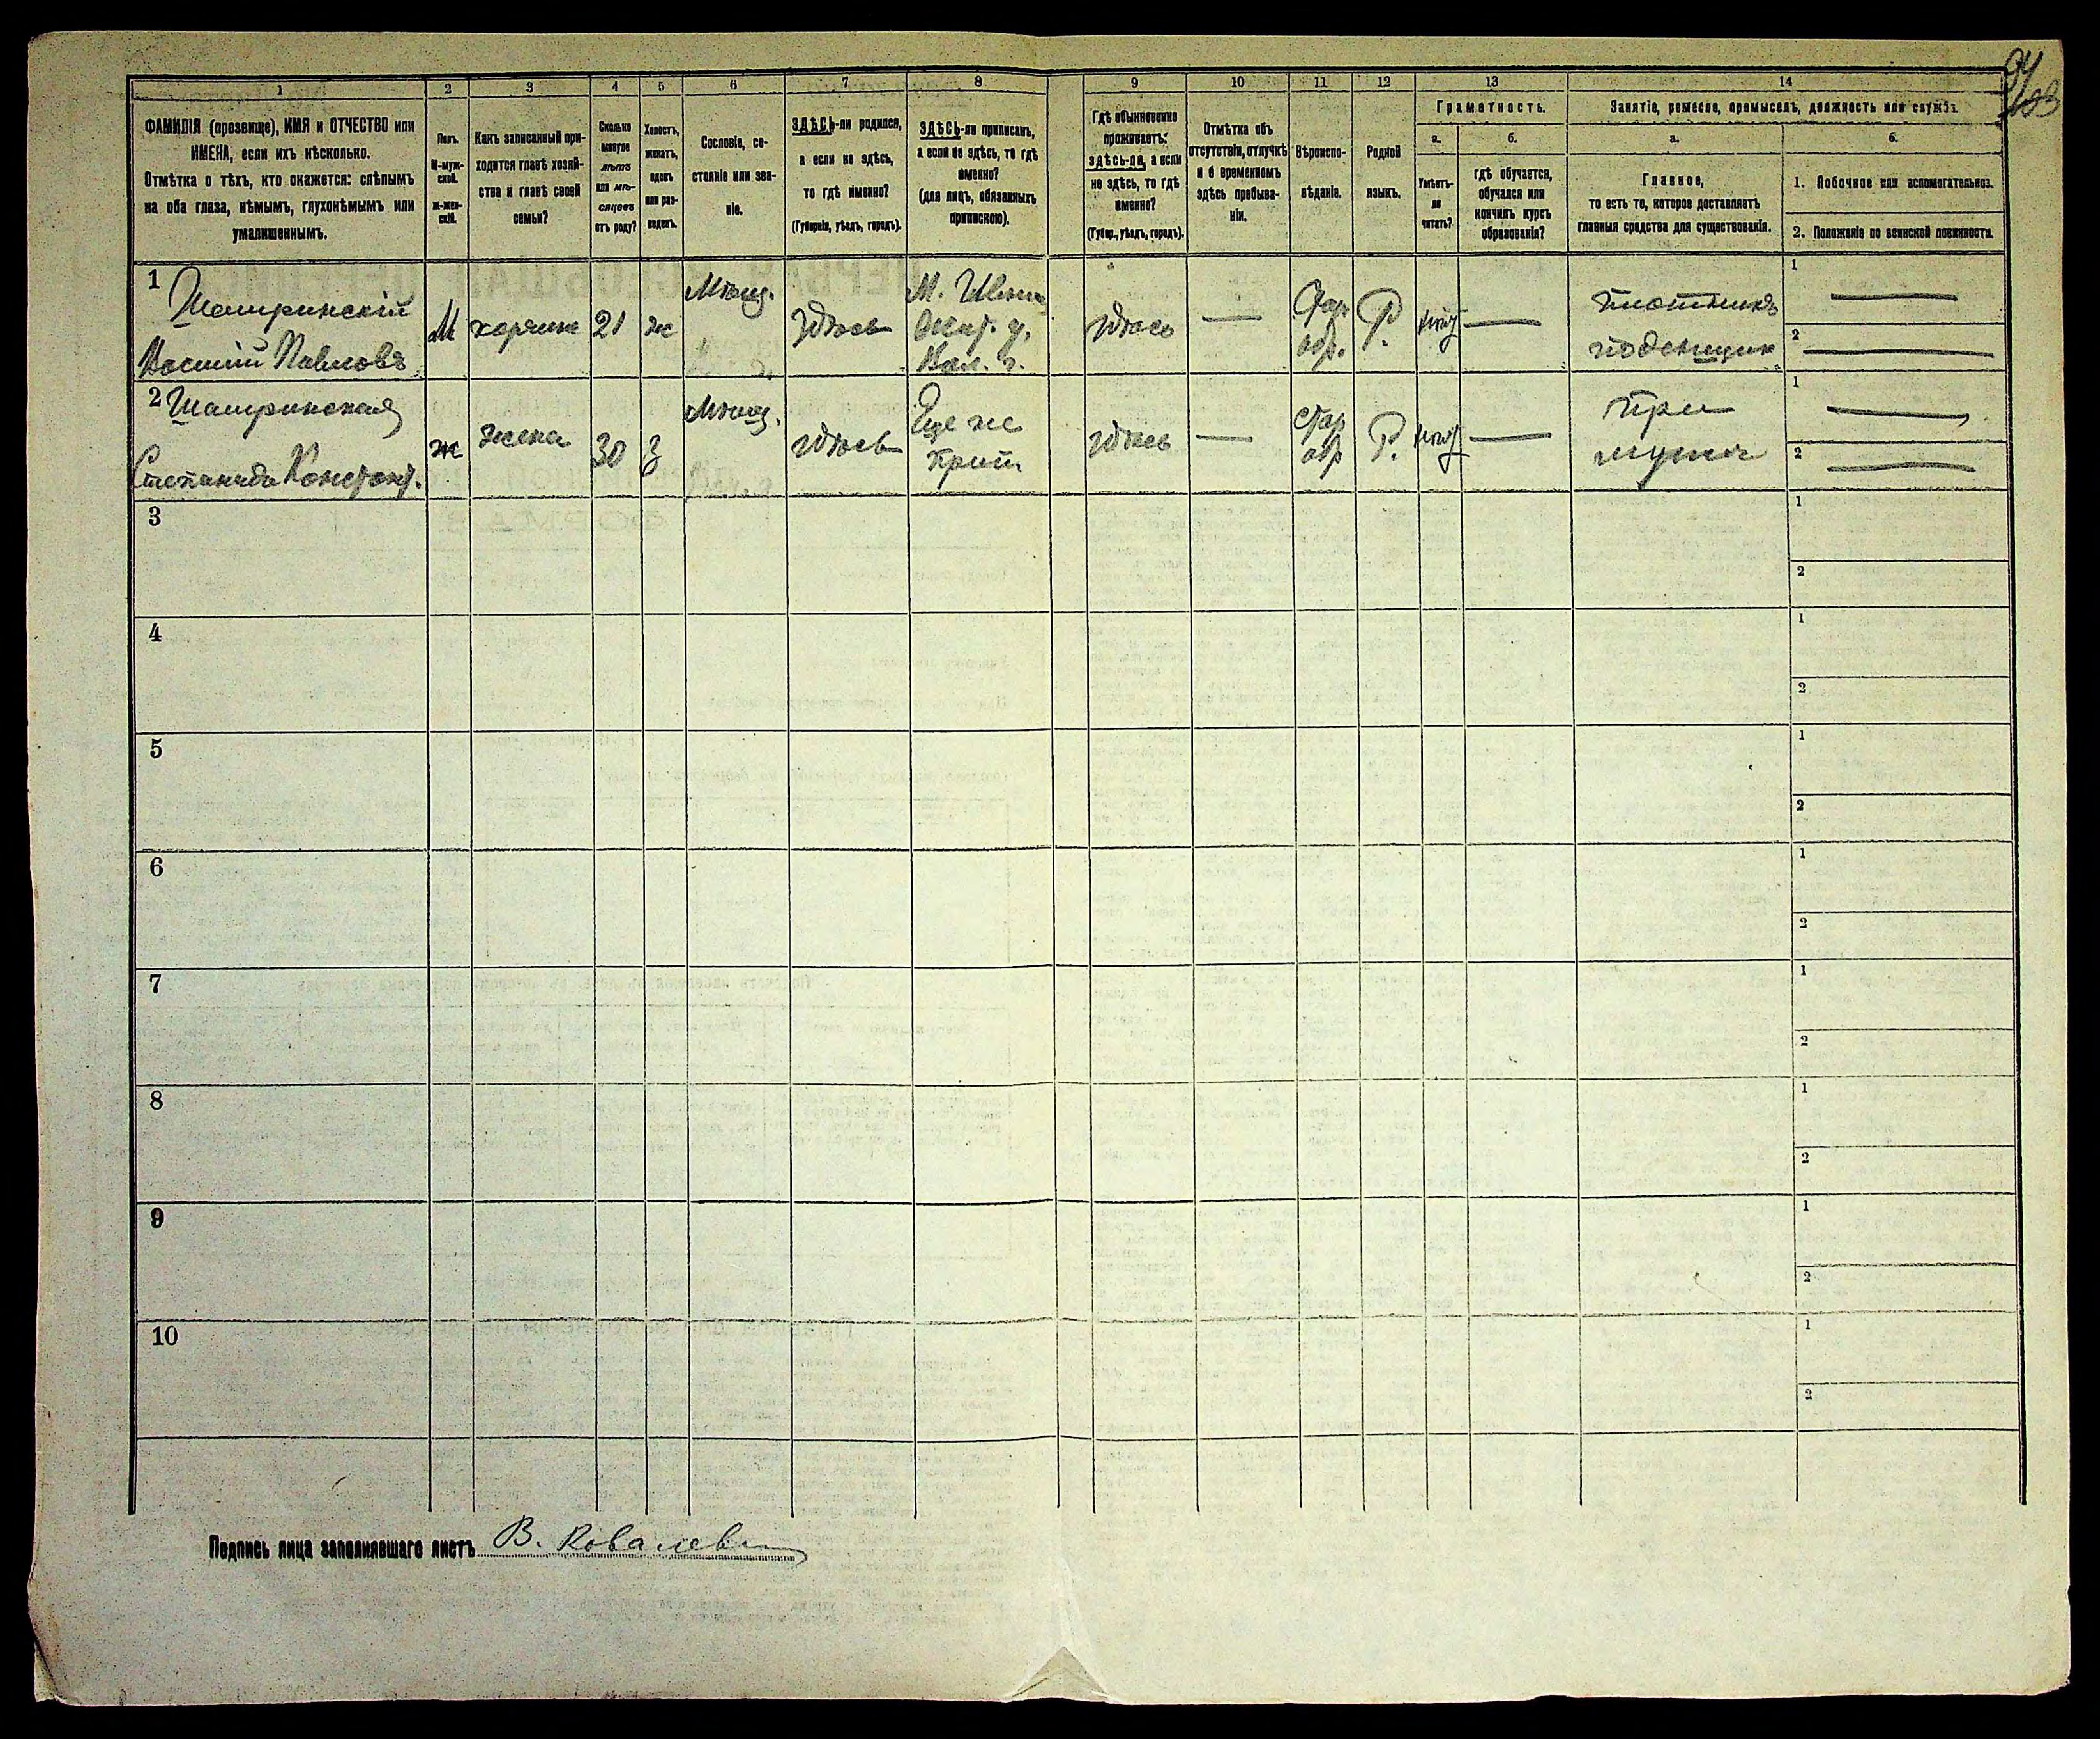 94
103
1 2 3 4 5 6 7 8 9 10 11 12 13 14
ФАМИЛІЯ (прозвище), ИМЯ и ОТЧЕСТВО или
ИМЕНА, если ихъ нѣсколько.
Отмѣтка о тѣхъ, кто окажется: слѣпымъ
на оба глаза, нѣмымъ, глухонѣмымъ или
умалишеннымъ.
Полъ.
М-муж-
ской.
ж-жен-
скій.
Какъ записанный при-
ходится главѣ хозяй-
ства и главѣ своей
семьи?
Сколько
минуло
лѣтъ
или мѣ-
сяцевъ
отъ роду?
Холостъ,
женатъ,
вдовъ
или раз-
веденъ.
Сословіе, со-
стояніе или зва-
ніе.
ЗДѢСЬ-ли родился,
а если не здѣсь,
то гдѣ именно?
(Губернія, уѣздъ, городъ).
ЗДѢСЬ-ли приписанъ,
а если не здѣсь, то гдѣ
именно?
(для лицъ, обязанныхъ
припискою).
Гдѣ обыкновенно
проживаетъ:
здѣсь-ли, а если
не здѣсь, то гдѣ
именно?
(Губер., уѣздъ, городъ).
Отмѣтка объ
отсутствіи, отлучкѣ
и о временномъ
здѣсь пребыва-
ніи.
Вѣроиспо-
вѣданіе.
Родной
языкъ.
Грамотность.
а.
Умѣетъ-
ли
читать?
б.
гдѣ обучается,
обучался или
кончилъ курсъ
образованія?
Занятіе, ремесло, промыселъ, должность или служба.
а.
Главное,
то есть то, которое доставляетъ
главныя средства для существованія.
б.
1. Побочное или вспомогательное.
2. Положеніе по воинской повинности.
1
Павловъ
М
21
ж
Мѣщ.
здѣсь
М.
Вол. г.
здѣсь
—
Стар
обр.
Р.
—
плотникъ
поденщик
1 —
2 —
2
Степанида Констант.
ж
жена
30
з
Мѣщ.
здѣсь
здѣсь
—
стар
обр
Р.
—
При
мужѣ
1 —
2 —
3
1
2
4
1
2
5
1
2
6
1
2
7
1
2
8
1
2
9
1
2
10
1
2
Подпись лица заполнявшаго листъ В.